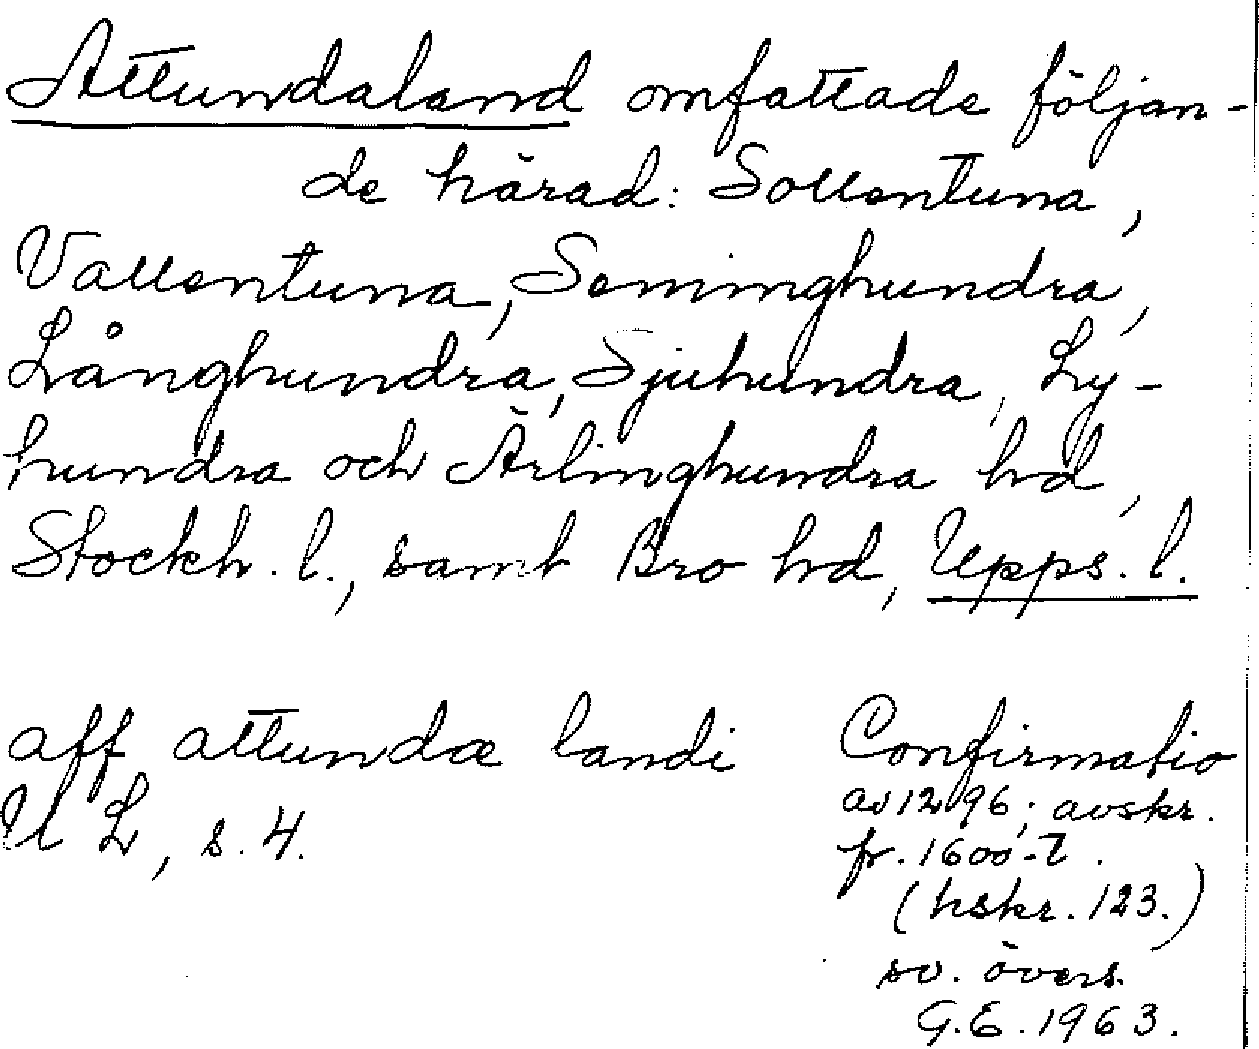 Attundaland omfattade följan-
de härad: Sollentuna,
Vallentuna, Seminghundra,
Långhundra, Sjuhundra, Ly-
hundra och Ärlinghundra hd,
Stockh. l., samt Bro hd, Upps. l.
aff attundæ landi
U L, s. 4.
Confirmatio
av 1296; avskr.
fr. 1600-t.
(hskr. 123.)
sv. övers.
G.E. 1963.